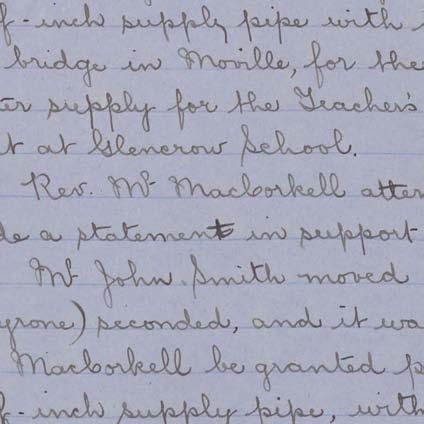 f-inch supply pipe with
bridge in Moville, for the
er supply for the Teacher's
t at Glencrow School.
Rev. Mr MacCorkell atten
de a statement in support
Mr John Smith moved
yrone) seconded, and it wa
MacCorkell be granted p
f-inch supply pipe, with